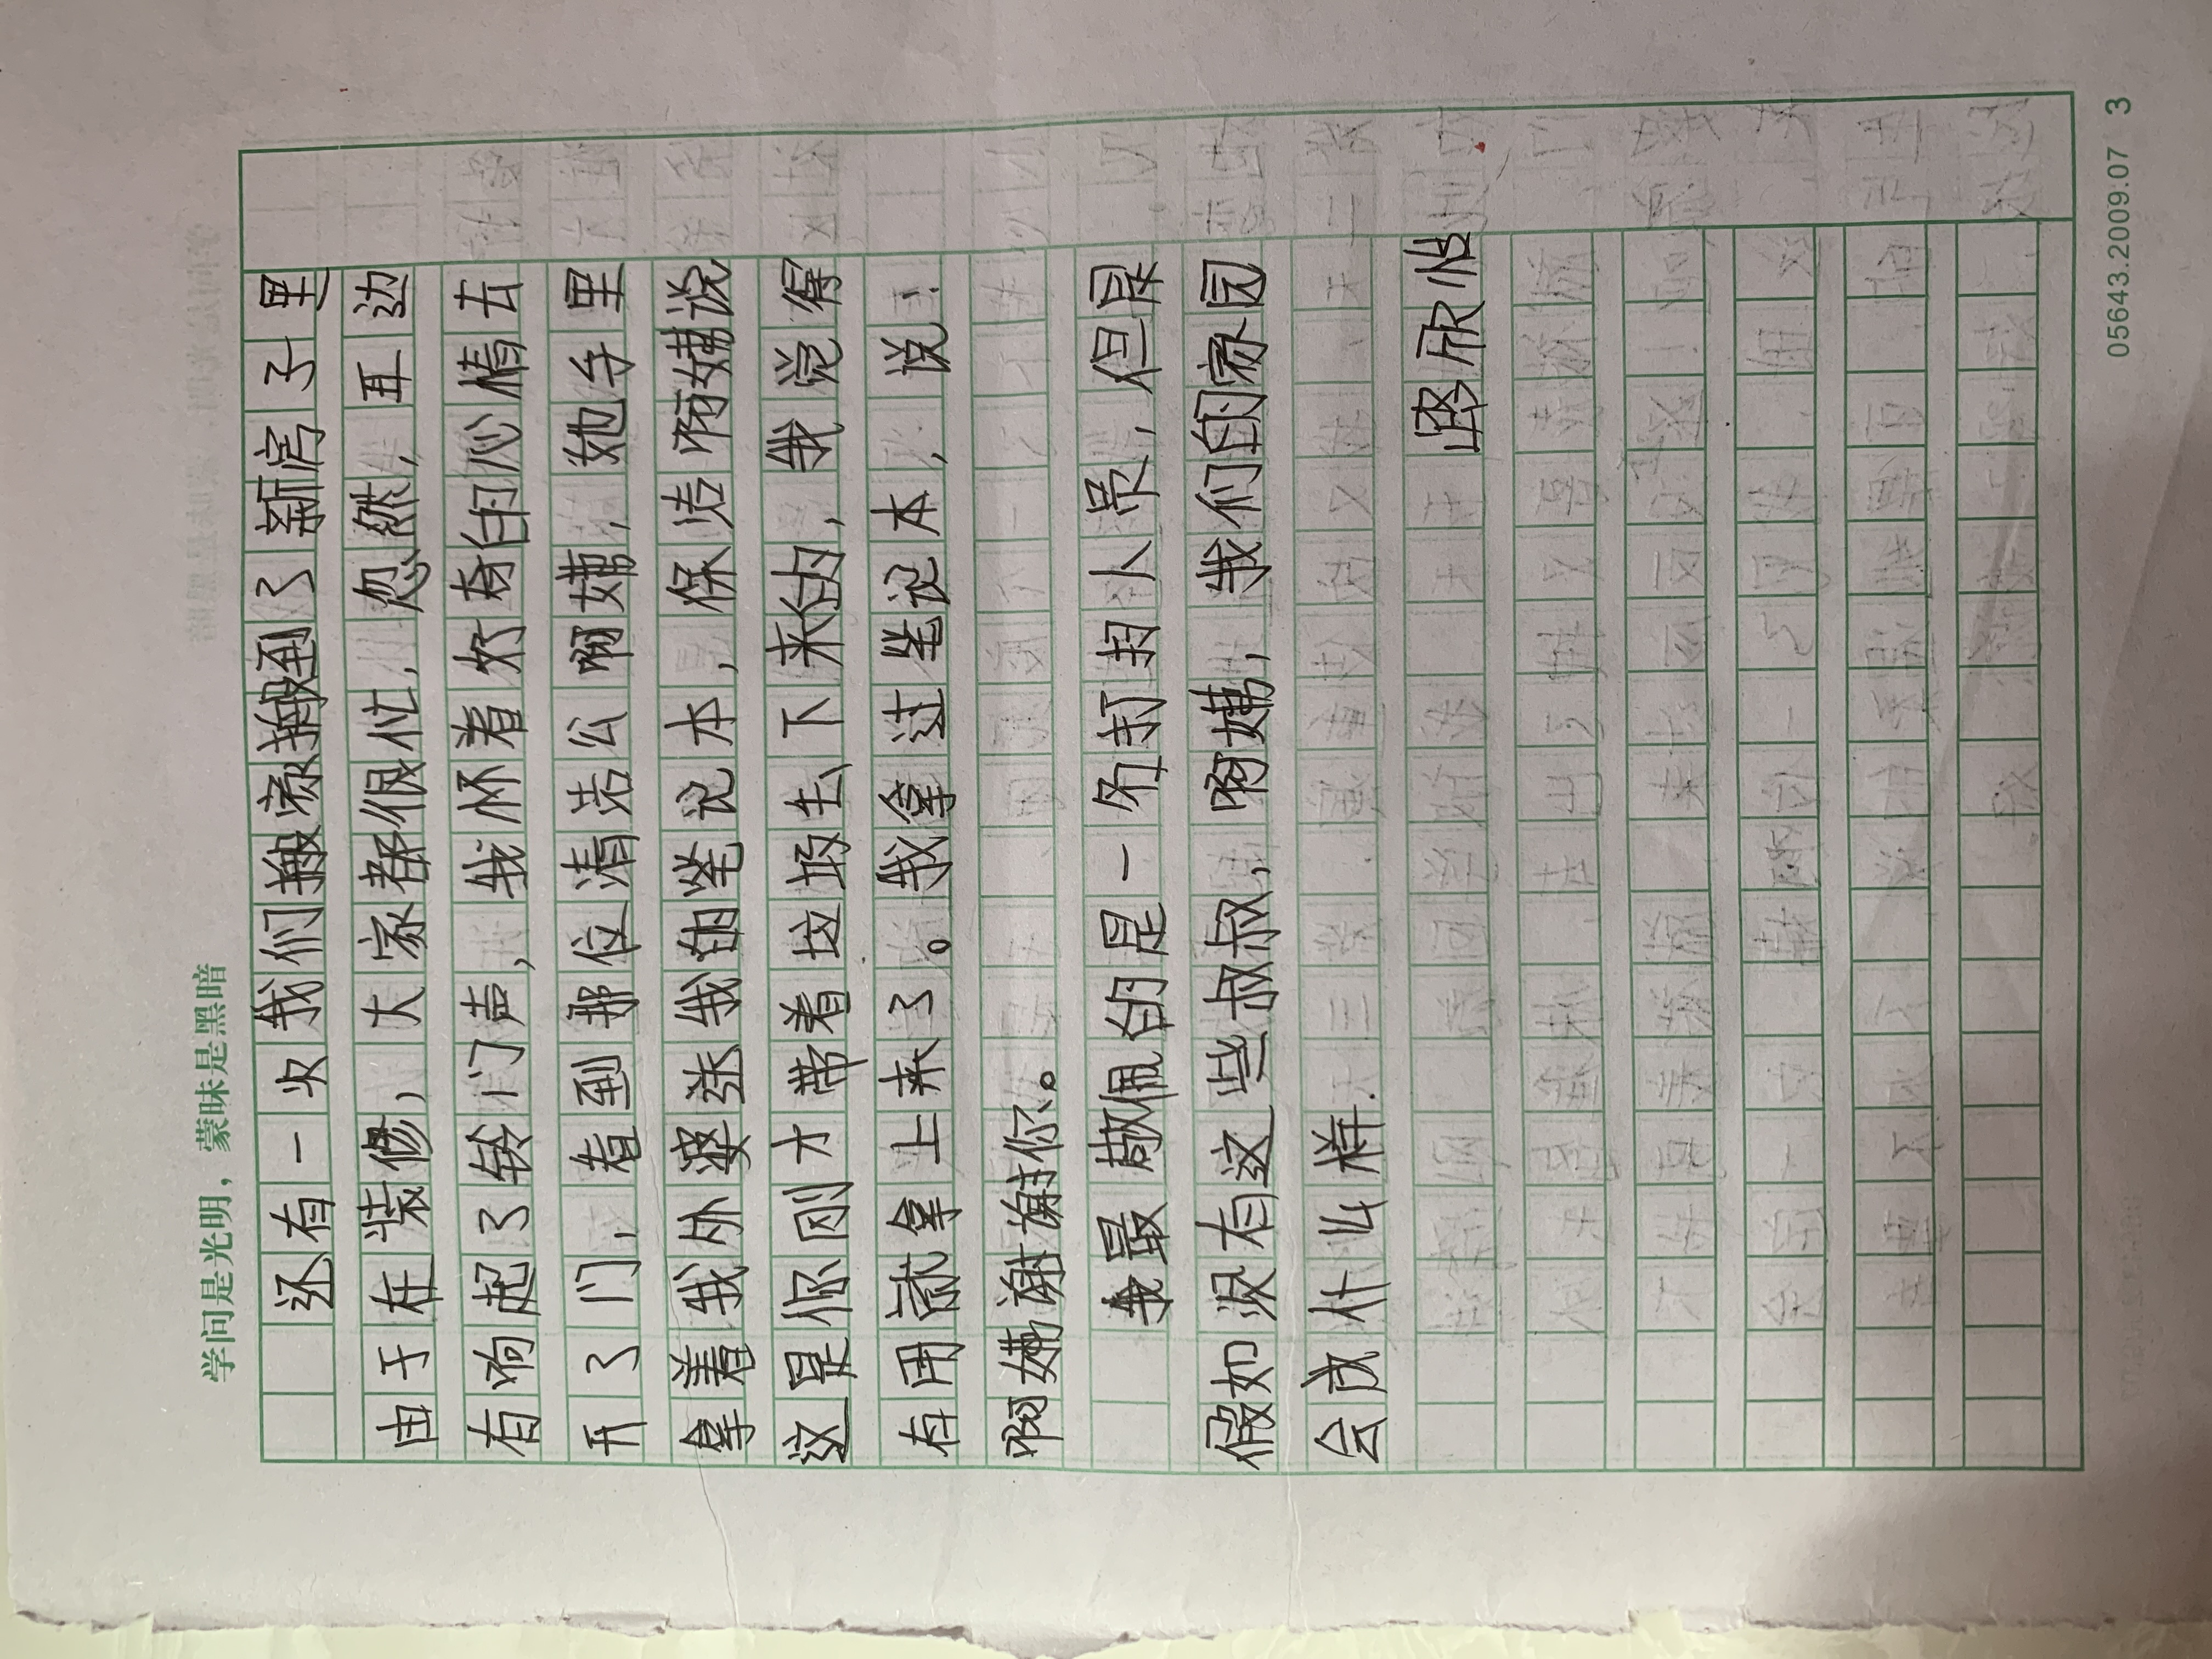 学问是光明，蒙昧是黑暗
还有一次我们搬家搬到了新房子里
由于在装修，大家都很忙，忽然，耳边
有响起了铃门声，我怀着好奇的心情去
开了门，看到那位清洁公啊姨，她手里
拿着我外婆送我的笔记本，保洁啊姨说
这是你刚才带着垃圾丢下来的，我觉得
有用就拿上来了。我拿过笔记本，说：
啊姨谢谢你。
我最敬佩的是一名打扫人员，但是
假如没有这些叔叔，啊姨，我们的家园
会成什么样.
路欣怡
05643.2009.07 3